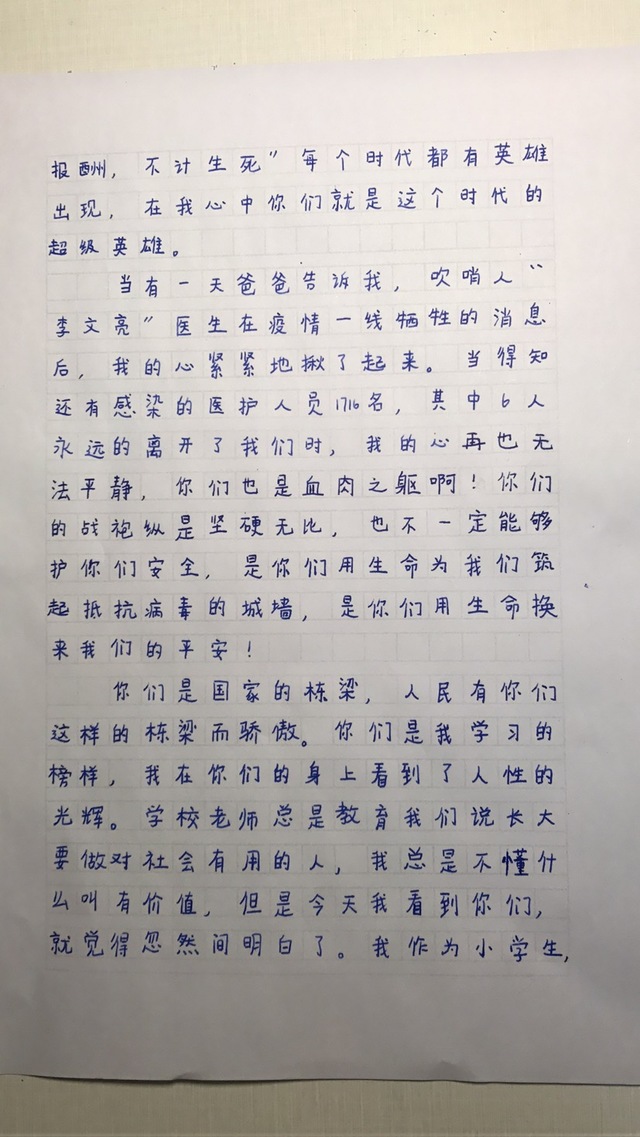 报酬，不计生死”每个时代都有英雄
出现，在我心中你们就是这个时代的
超级英雄。
当有一天爸爸告诉我，吹哨人“
李文亮”医生在疫情一线牺牲的消息
后，我的心紧紧地揪了起来。当得知
还有感染的医护人员1716名，其中6人
永远的离开了我们时，我的心再也无
法平静，你们也是血肉之躯啊！你们
的战袍纵是坚硬无比，也不一定能够
护你们安全，是你们用生命为我们筑
起抵抗病毒的城墙，是你们用生命换
来我们的平安！
你们是国家的栋梁，人民有你们
这样的栋梁而骄傲。你们是我学习的
榜样，我在你们的身上看到了人性的
光辉。学校老师总是教育我们说长大
要做对社会有用的人，我总是不懂什
么叫有价值，但是今天我看到你们，
就觉得忽然间明白了。我作为小学生，